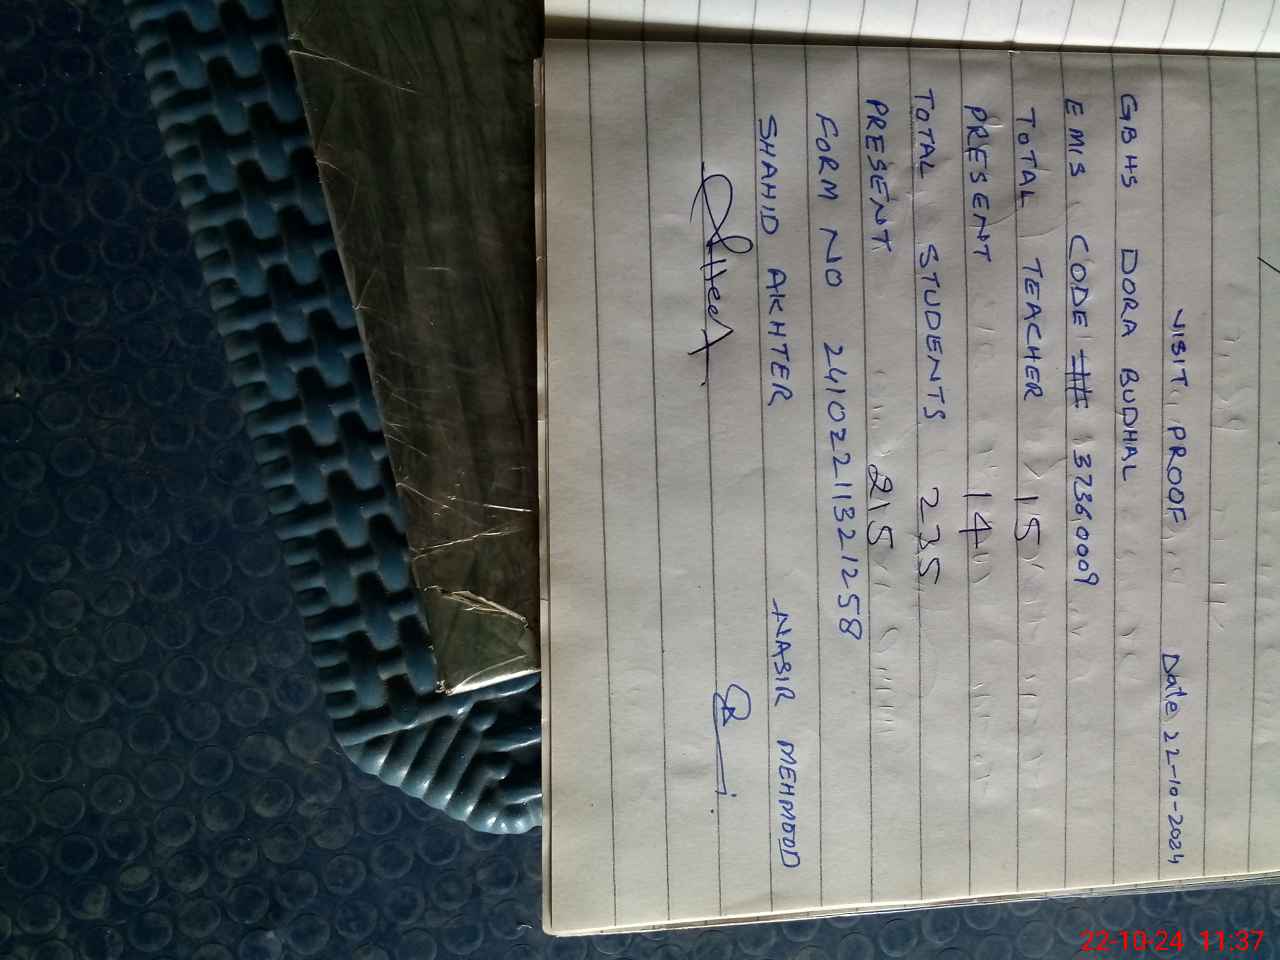 VISIT PROOF Date 22-10-2024
GBHS DORA BUDHAL
EMIS CODE # 37360009
TOTAL TEACHER 15
PRESENT 14
TOTAL STUDENTS 235
PRESENT 215
FORM NO 24102211321258
SHAHID AKHTER NASIR MEHMOOD
22-10-24 11:37